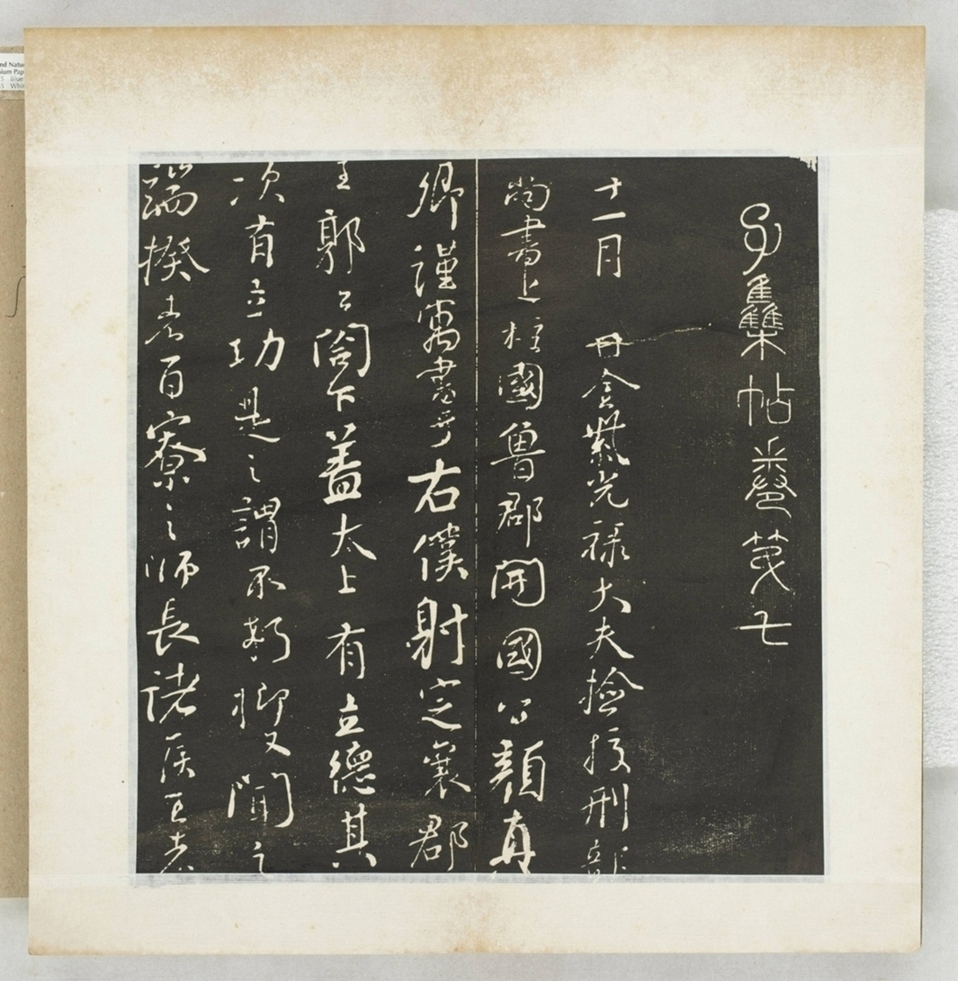 集帖卷第七
十一月 日金紫光禄大夫撿挍刑部
尚書上柱國魯郡開國公顔真
卿謹寓書于右僕射定襄郡
王郭公閤下蓋太上有立德其
次有立功是之謂不朽抑又聞之
端揆者百寮之師長諸侯王者